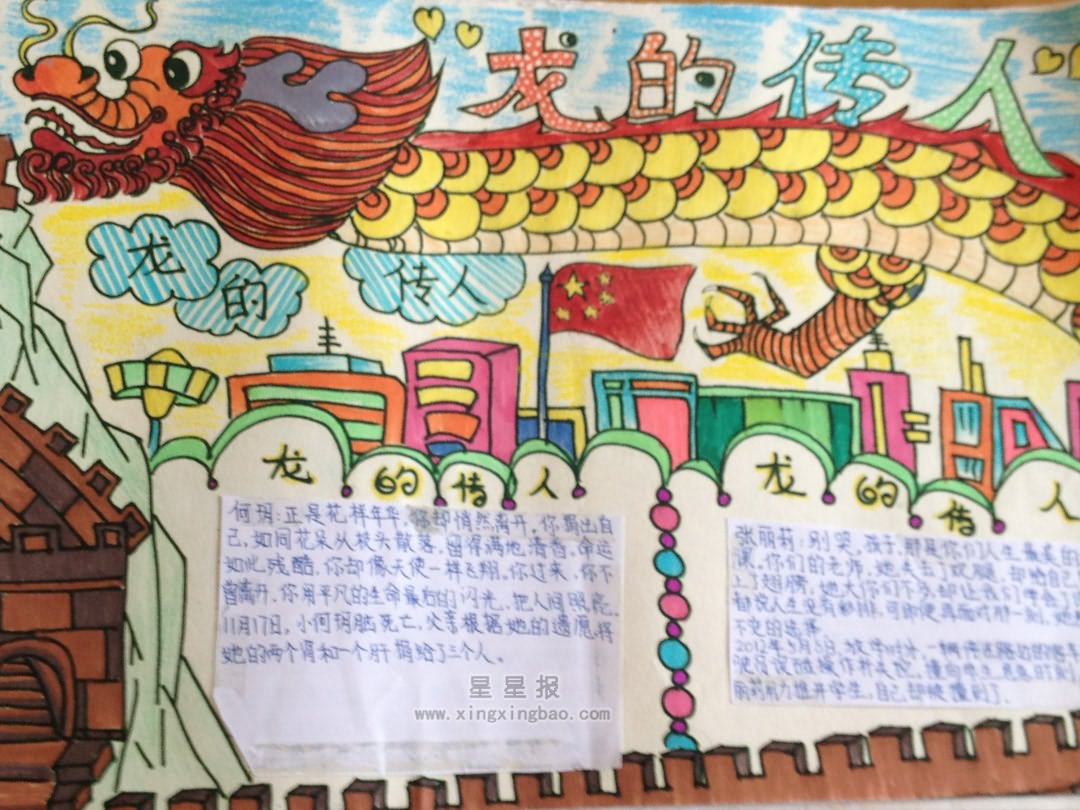 "龙的传人"
龙的
传人
龙的传人
何玥:正是花样年华,你却悄然离开。你捐出自
己,如同花朵从枝头散落,留得满地清香。命运
如此残酷,你却像天使一样飞翔。你过来,你不
曾离开,你用平凡的生命最后的闪光,把人间照亮。
11月17日,小何玥脑死亡,父亲根据她的遗愿,将
她的两个肾和一个肝捐给了三个人。
龙的传人
张丽莉:别哭,孩子,那是你们人生最美的一
课。你们的老师,她失去了双腿,却给自己
上了翅膀,她大你们不多,却让我们学会了
都说人生没有彩排,可即使再面对那一刻,她
不变的选择。
2012年5月8日,放学时分,一辆停在路边的客车
驶员误碰操作杆
丽莉用力推开学生,自己却被撞到了。
星星报
www.xingxingbao.com